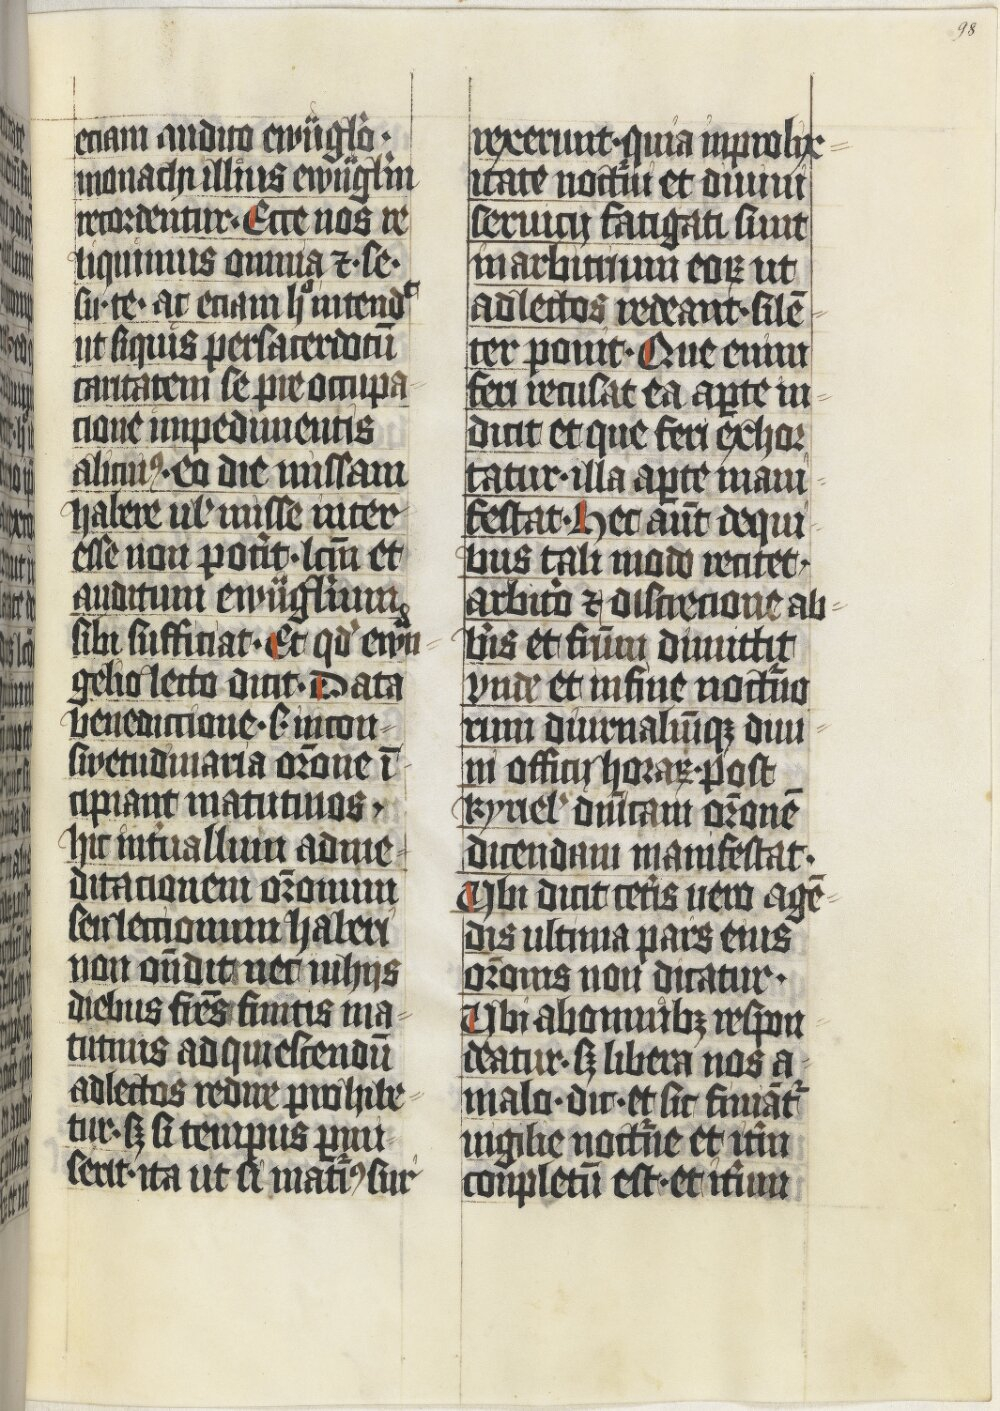 98
etiam audito ewāglio·
monachi illius ewāglium
recordentur· Ecce nos re
liquimus omnia ⁊·se·
su·te· at etiam hͦ intendͭ
ut siquis per sacerdotū
caritatem se pre occupa=
cione inpedimentis
alicuiꝰ· eo die missam
habere ulˀ misse inter
esse non potit· lcm̄ et
auditum ewāglium
sibi sufficiat· Et qdˀ ewan=
gelio lecto dicit· Data
benedictione· s· incon-
swetudinaria or̄one ī-
cipiant matutinos·
hic int̉uallum ad me-
ditationem or̄onum
seu lectionum haberi
non on̄dit nec in hijs
diebus fr̄es finitis ma-
tutinis ad quiescendū
ad lectos redire prohibe=
tur· sꝫ si tempus p̲mi-
serit· ita ut si matꝰ sur
rexerunt· quia in prolix=
itate noct̉ni et diuini
seruicij fatigati sunt
in arbitrium eoꝝ ut
ad lectos redeant· silē=
ter ponit· Que enim
feri recusat ea ap̲te in=
dicit et que feri exhor
tatur· illa ap̲te mani=
festat· Hec aūt de qui-
bus tali modo recitet·
arbit̉o ⁊ discrecione ab=
b̄is et fr̄um dimittit
vnde et in fine noct̉no
rum diurnaliūqꝫ diui=
ni officij horaꝝ· post
kyriel̉ dn̄icam or̄onē
dicendam manifestat·
Vbi dicit cet̉is uero agē=
dis ultima pars eius
or̄onis non dicatur·
Vbi ab omnibꝫ respon=
deatur· sꝫ libera nos a
malo· dic· et sic finiāt̉
uigilie noct̉ne et it̉m
conpletū est· et it̉um